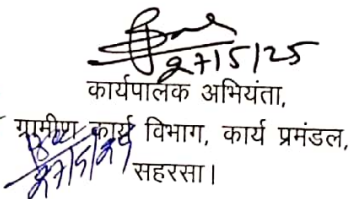 27/5/25
कार्यपालक अभियंता,
ग्रामीण कार्य विभाग, कार्य प्रमंडल,
27/5/25
सहरसा।